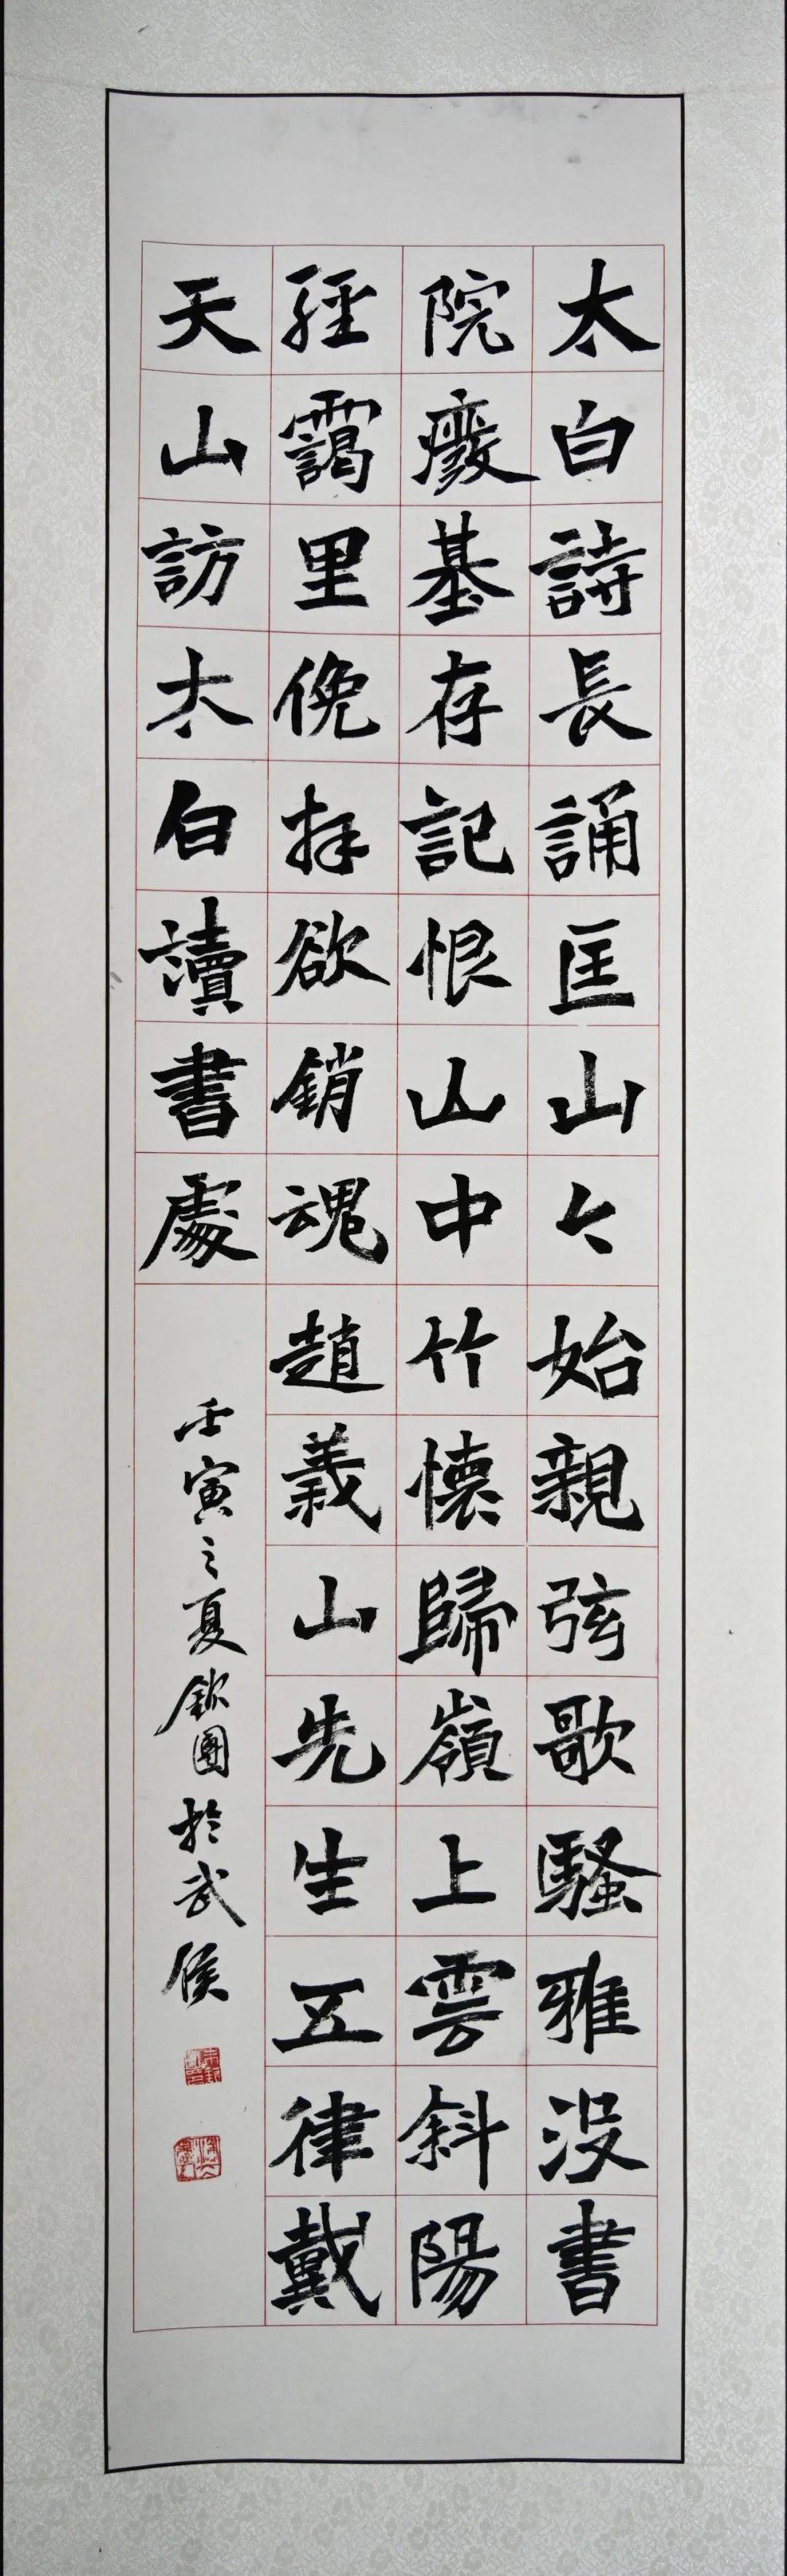 太白詩長誦匡山今始親弦歌騷雅没書
院癈基存記恨山中竹懷歸嶺上雲斜陽
經靄里俛拜欲銷魂趙義山先生五律戴
天山訪太白讀書處
壬寅之夏欽圖於武侯